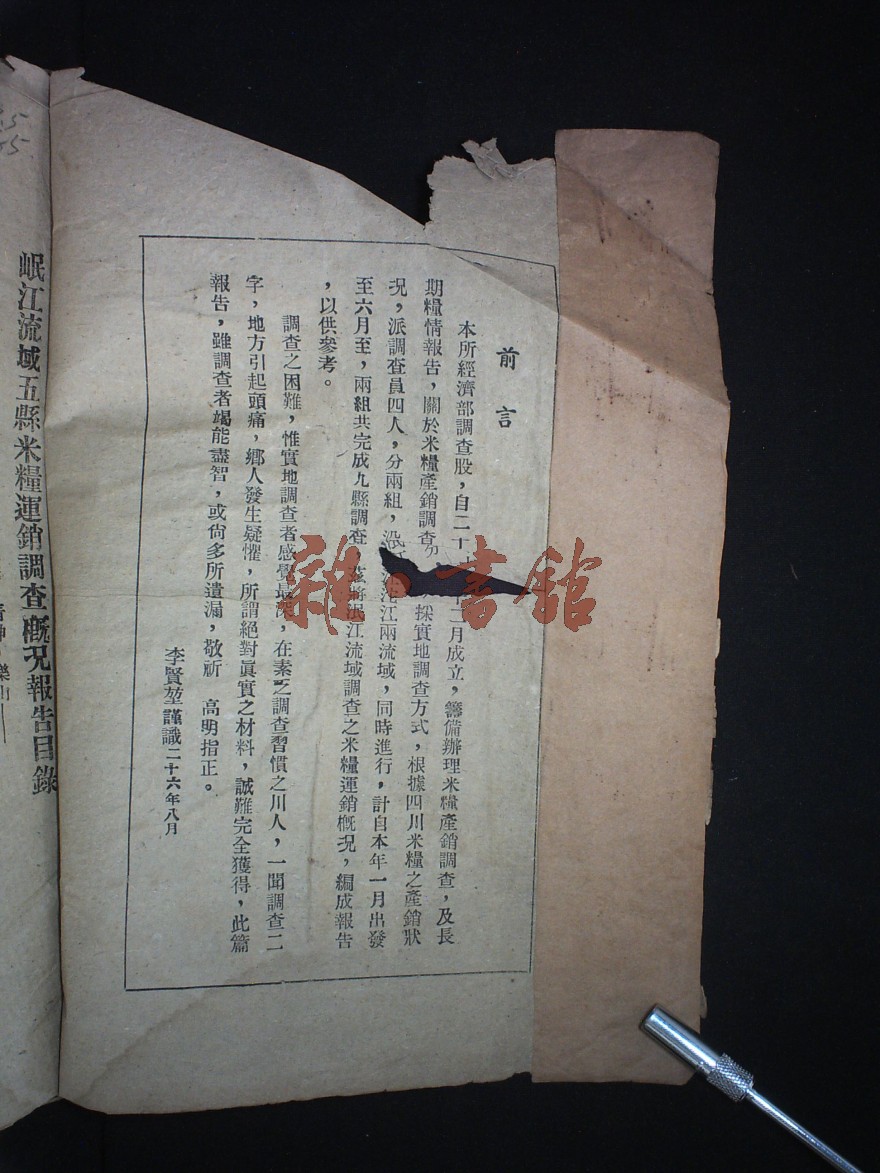 前言
本所經濟部調查股,自二十 十二月成立,籌備辦理米糧產銷調查,及長
期糧情報告,關於米糧產銷調查分 採實地調查方式,根據四川米糧之產銷狀
況,派調查員四人,分兩組,沿 沱江兩流域,同時進行,計自本年一月出發
至六月至,兩組共完成九縣調查, 將岷江流域調查之米糧運銷概況,編成報告
,以供參考。
調查之困難,惟實地調查者感覺最深,在素乏調查習慣之川人,一聞調查二
字,地方引起頭痛,鄉人發生疑懼,所謂絕對眞實之材料,誠難完全獲得,此篇
報告,雖調查者竭能盡智,或尙多所遺漏,敬祈 高明指正。
李賢堃謹識二十六年八月
岷江流域五縣米糧運銷調查概況報告目錄
樂山
雜·書館